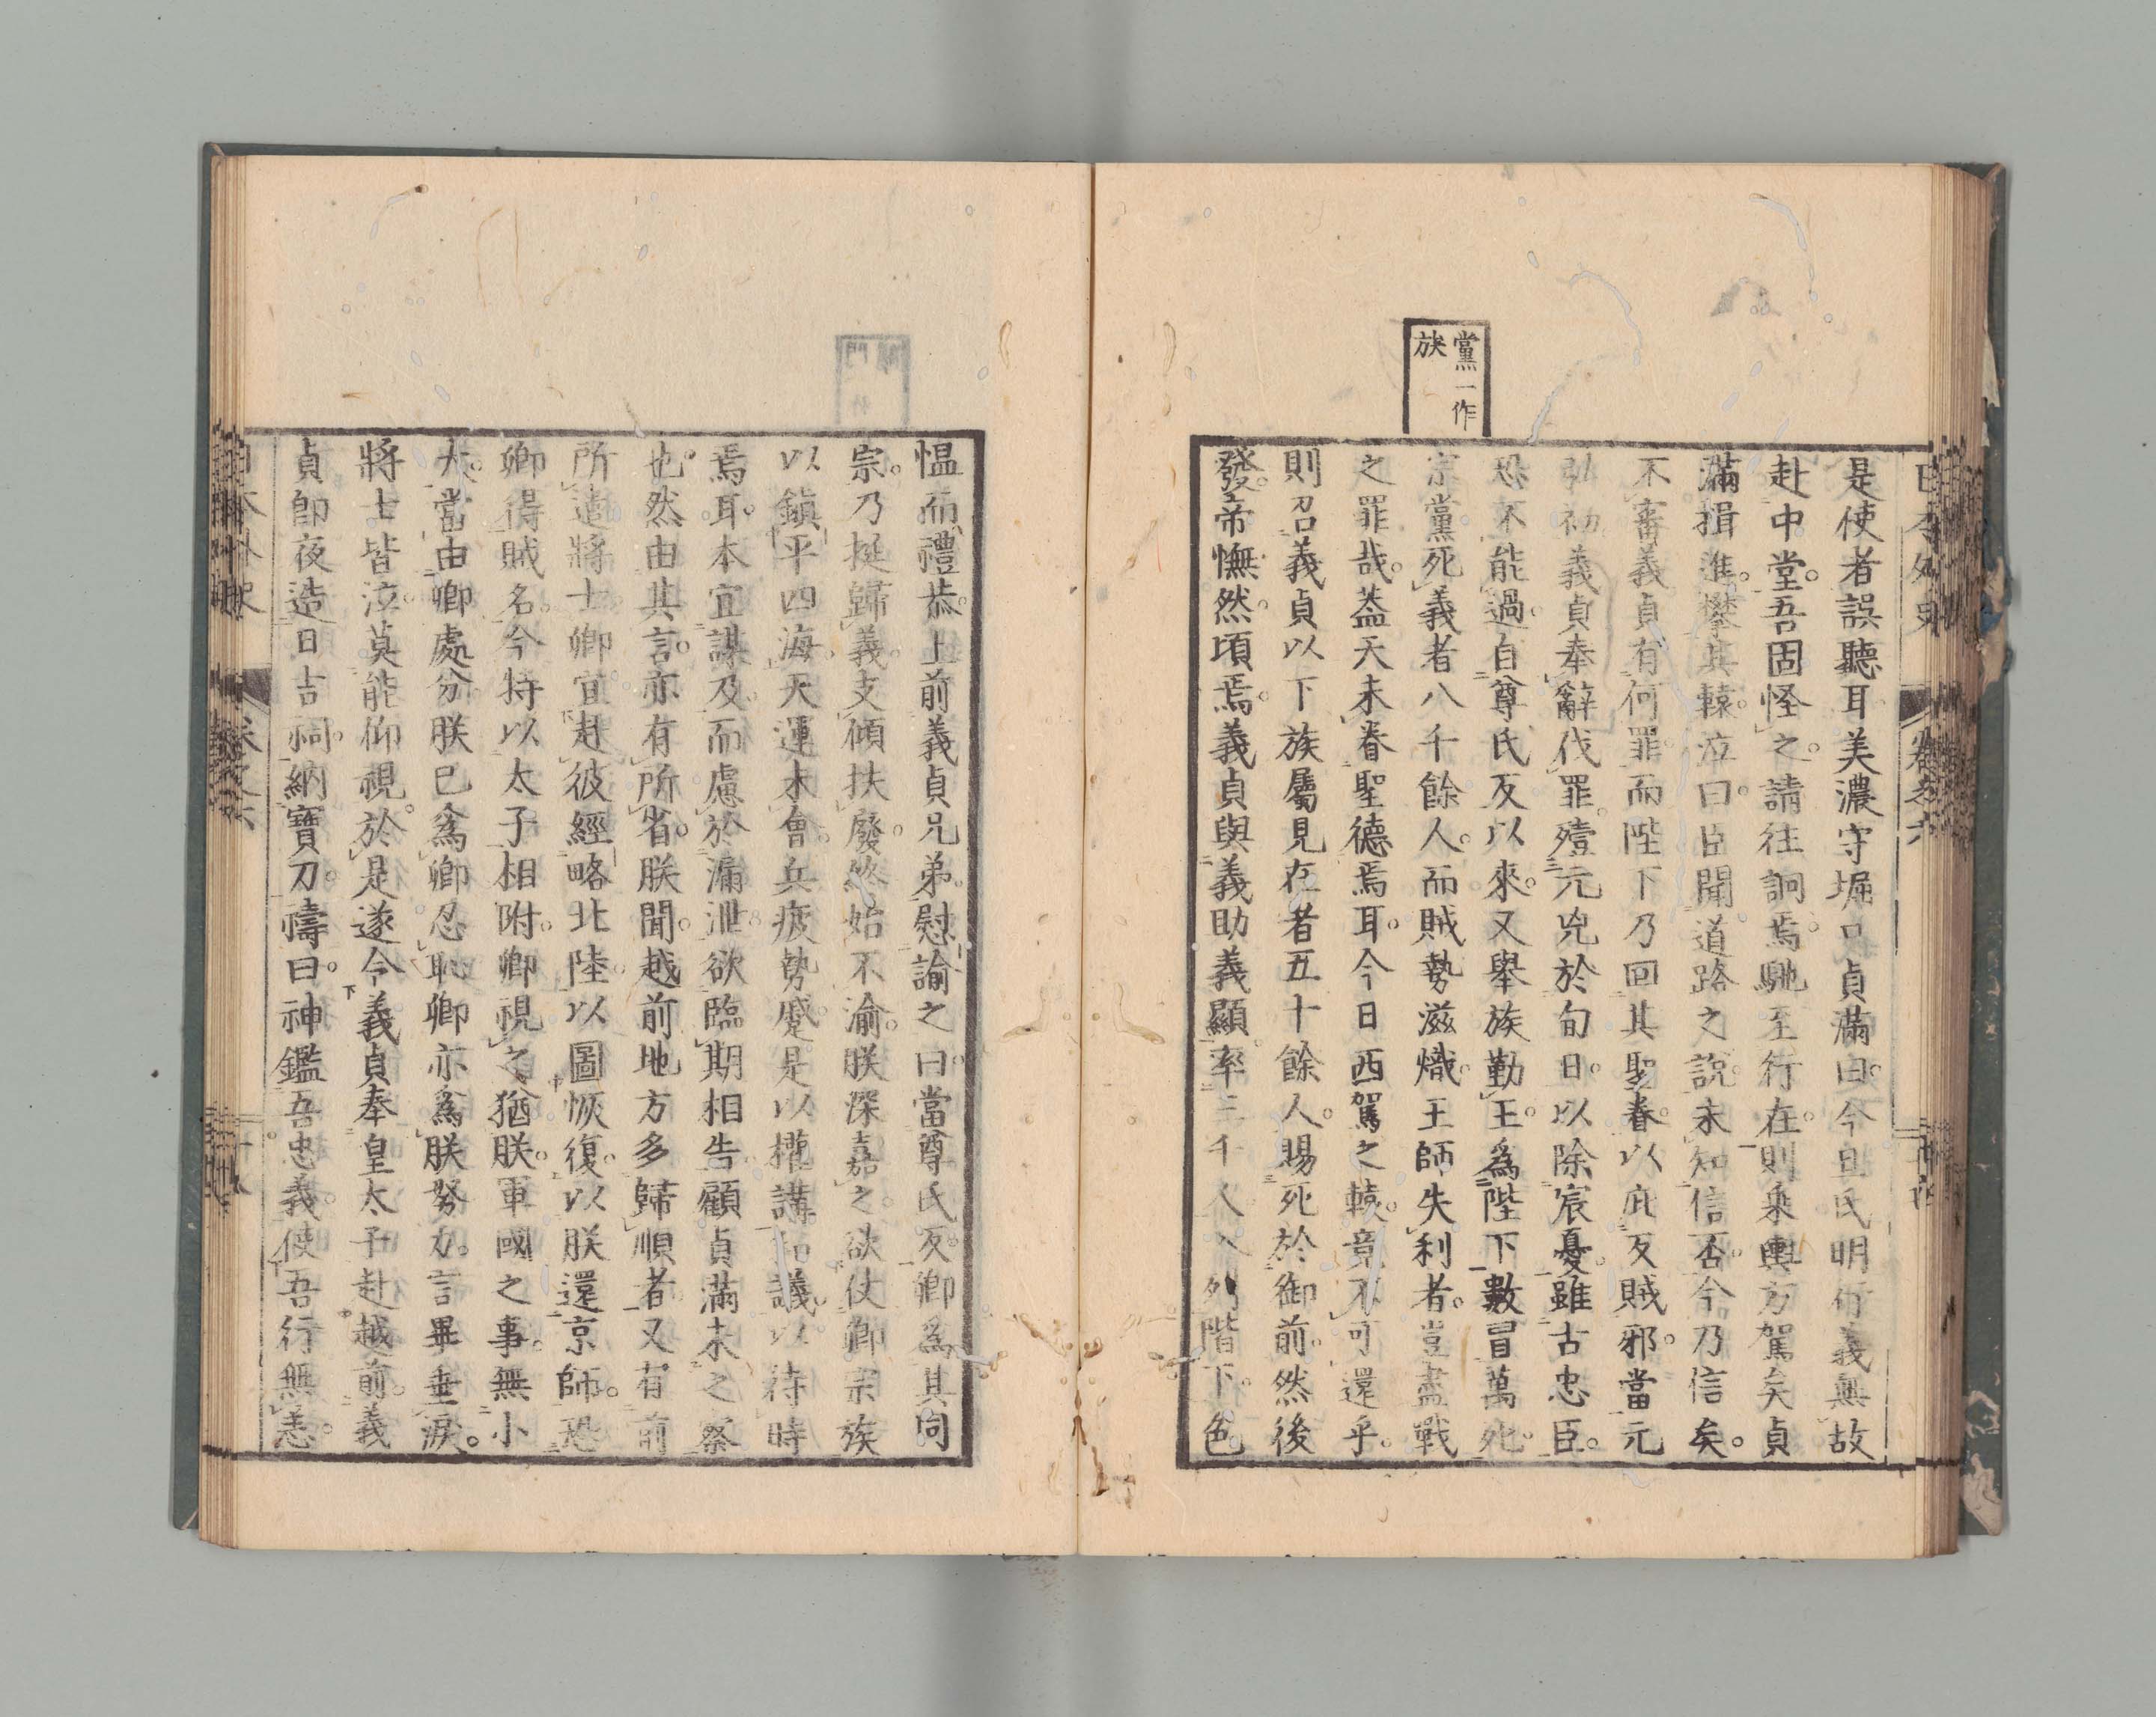 黨一作
族
日本外史 卷之六
是使者誤聽耳美濃守堀口貞滿曰今旦氏明行義無故
赴中堂吾固怪之請往詗焉馳至行在則乘輿方駕矣貞
滿揖進攀其轅泣曰臣聞道路之說未知信否今乃信矣
不審義貞有何罪而陛下乃回其聖眷以庇反賊邪當元
弘初義貞奉辭伐罪殪元兇於旬日以除宸憂雖古忠臣
恐不能過自尊氏反以來又舉族勤王爲陛下數冒萬死
宗黨死義者八千餘人而賊勢滋熾王師失利者豈盡戰
之罪哉蓋天未眷聖德焉耳今日西駕之轅竟不可還乎
則召義貞以下族屬見在者五十餘人賜死於御前然後
發帝憮然頃焉義貞與義助義顯率三千人入列階下色
慍而禮恭上前義貞兄弟慰諭之曰當尊氏反卿爲其同
宗乃挺歸義支傾扶廢終始不渝朕深嘉之欲仗卿宗族
以鎭平四海天運未會兵疲勢蹙是以權講和議以待時
焉耳本宜謀及而慮於漏泄欲臨期相告顧貞滿未之察
也然由其言亦有所省朕聞越前地方多歸順者又有前
所遣將士卿宜赴彼經略北陸以圖恢復以朕還京師恐
卿得賊名今特以太子相附卿視之猶朕軍國之事無小
大當由卿處分朕已爲卿忍恥卿亦爲朕努力言畢垂淚
將士皆泣莫能仰視於是遂令義貞奉皇太子赴越前義
貞卽夜造日吉祠納寶刀禱曰神鑑吾忠義使吾行無恙
日本外史 卷之六